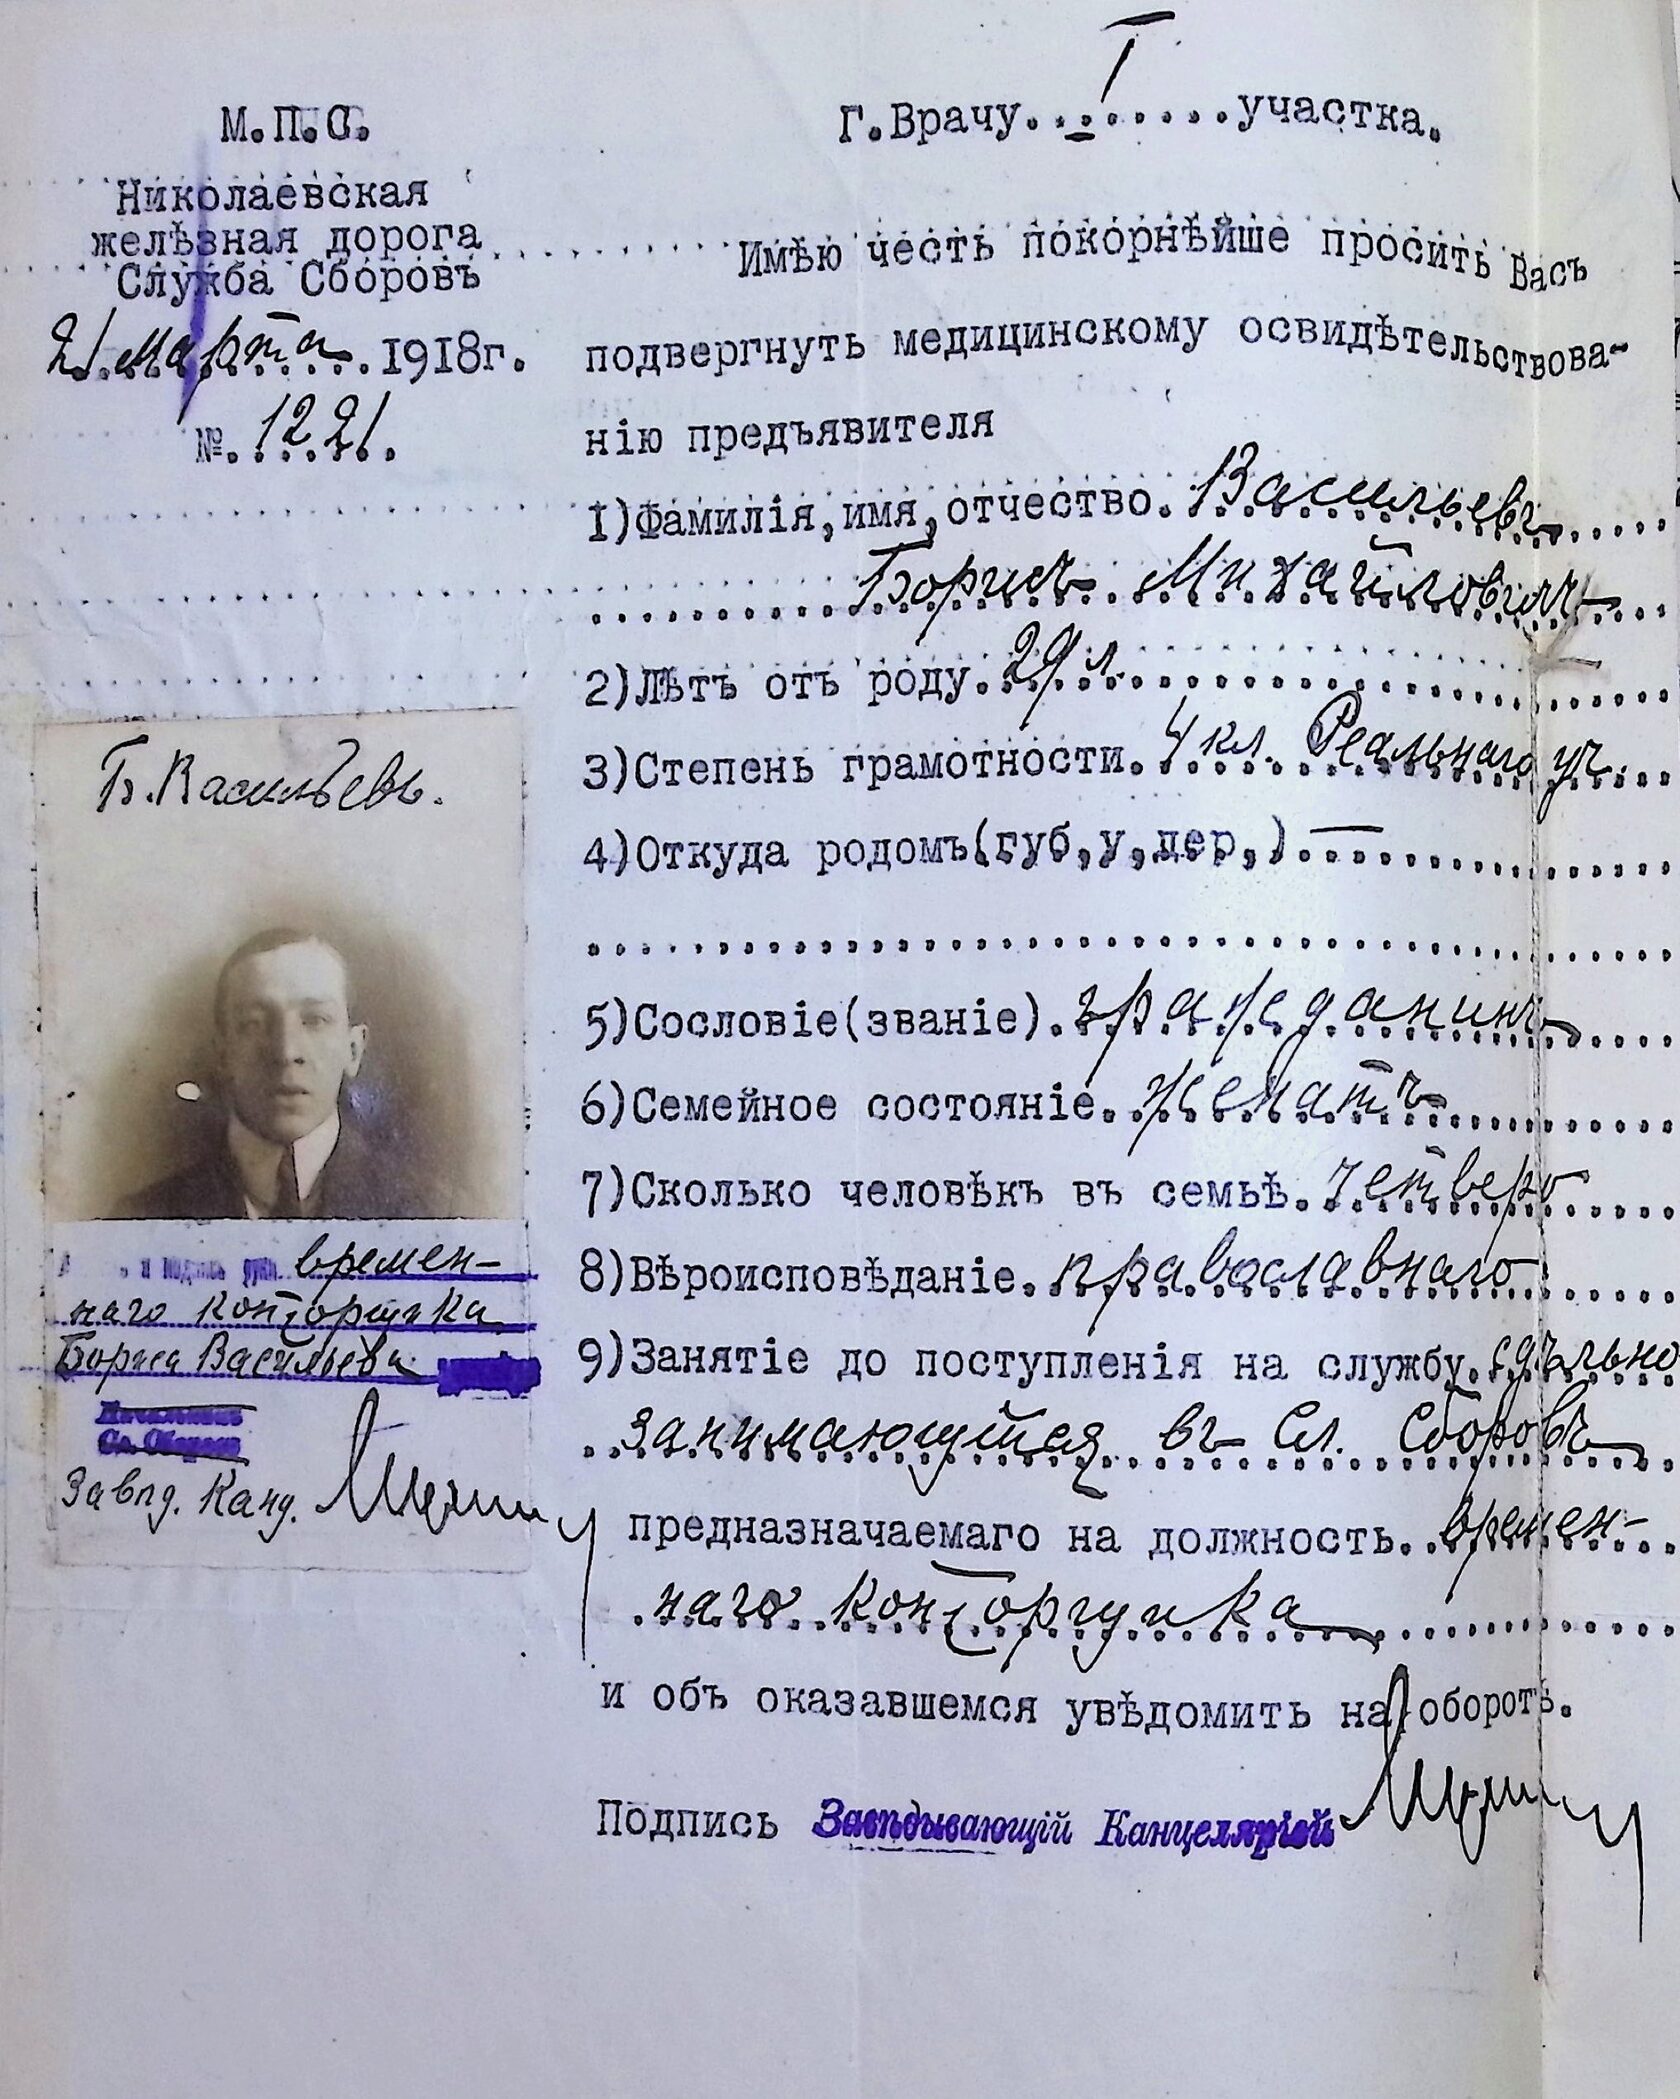 М.П.С.
Николаевская
желѣзная дорога
Служба Сборовъ
21 Марта 1918г.
№ 1221.
Г.Врачу I участка.
Имѣю честь покорнѣйше просить Васъ
подвергнуть медицинскому освидѣтельствова-
нію предъявителя
1)Фамилія,имя,отчество. Васильевъ
Борисъ Михайловичъ
2)Лѣтъ отъ роду. 29 л.
3)Степень грамотности. 4 кл. Реальнаго уч.
4)Откуда родомъ(губ,у,дер,) —
5)Сословіе(званіе). гражданинъ
6)Семейное состояніе. женатъ
7)Сколько человѣкъ въ семьѣ. Четверо
8)Вѣроисповѣданіе. православнаго
9)Занятіе до поступленія на службу. сдѣльно
занимающійся въ Сл. Сборовъ
предназначаемаго на должность. времен-
наго конторщика
и объ оказавшемся увѣдомить на оборотѣ.
Подпись Завѣдывающій Канцеляріей
Б. Васильевъ.
и подпись руки времен-
наго конторщика
Бориса Васильева
Начальникъ
Сл. Сборовъ
Завѣд. Канц.